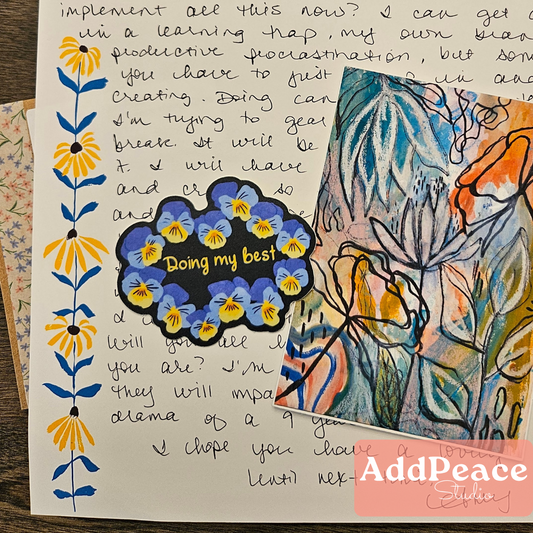 implement all this now? I can get
in a learning trap, my own bran
productive procrastination, but som
you have to just in and
creating. Doing can
I'm trying to gear
break. It will be
it. I will have
and cr so
and
Doing my best
I
Will you all h
you are? I'm
they will impa
drama of a 9 year
I hope you have a lovely
Until next time,
AddPeace
Studio